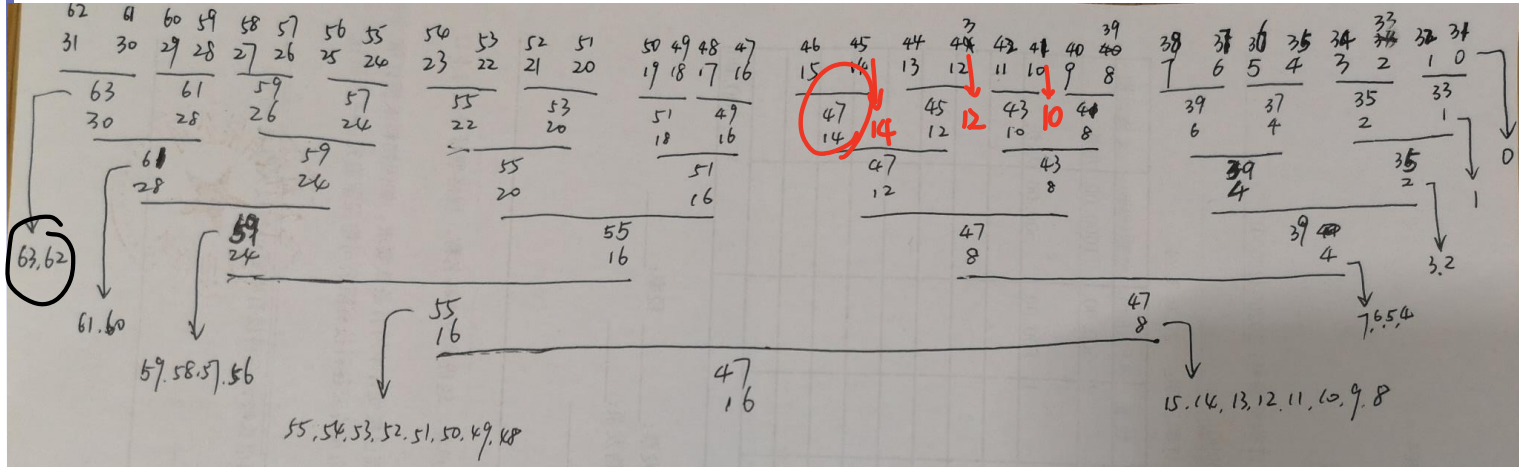 62 61 60 59 58 57 56 55 54 53 52 51 50 49 48 47 46 45 44 43 42 41 40 39 38 37 36 35 34 33 32 31
31 30 29 28 27 26 25 24 23 22 21 20 19 18 17 16 15 14 13 12 11 10 9 8 7 6 5 4 3 2 1 0
63 61 59 57 55 53 51 49 47 45 43 41 39 37 35 33
30 28 26 24 22 20 18 16 14 14 12 12 10 10 8 6 4 2 1
61 59 55 51 47 43 39 35 0
28 24 20 16 12 8 4 2 1
59 55 47 39
24 16 8 4
63,62 3,2
61.60 55 47 7,6,5,4
16 8
59.58.57.56 47
16 15.14,13,12,11,10,9,8
55,54,53,52,51,50,49,48